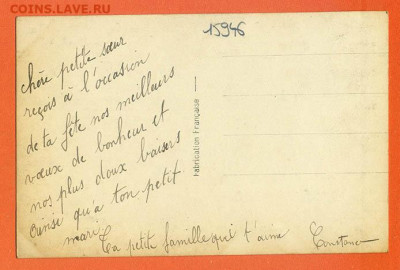 COINS.LAVE.RU
15946
chère petite sœur
reçois à l'occasion
de ta fête nos meilleurs
vœux de bonheur et
nos plus doux baisers
Ainsi qu'à ton petit
mari
Ta petite famille qui t'aime Constance
Fabrication Française